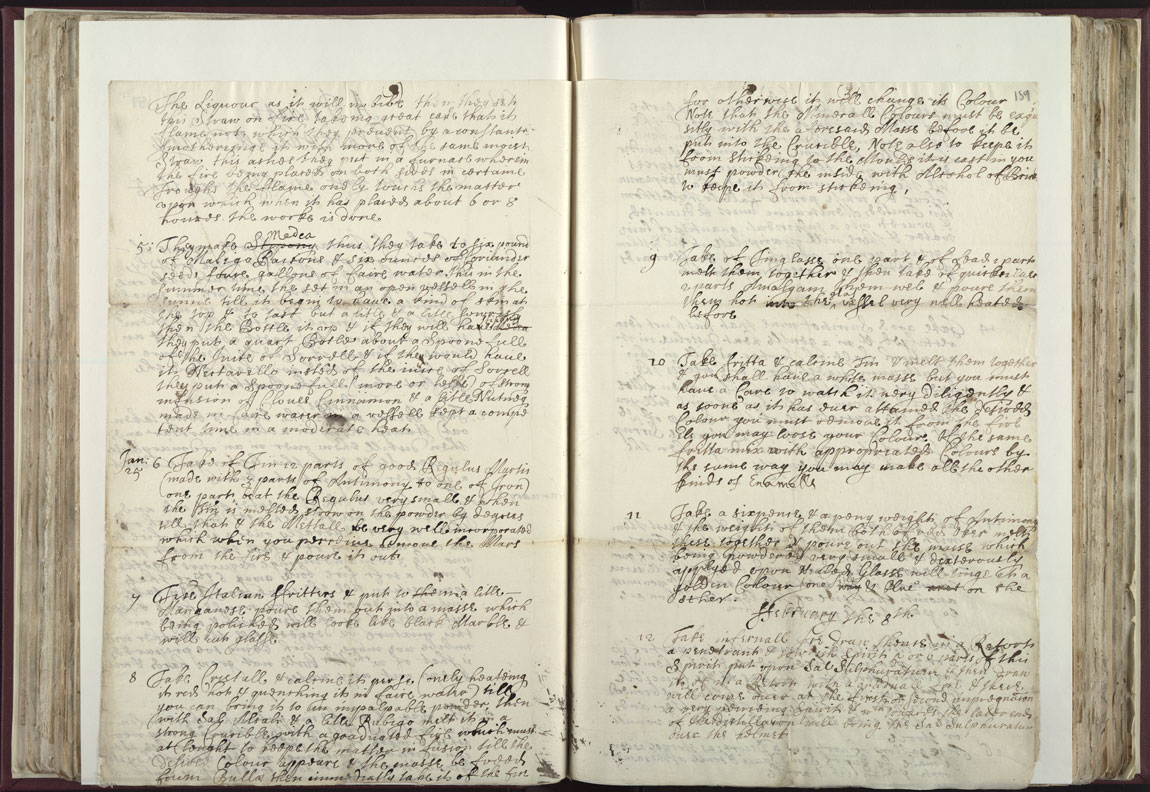 The Liquour as it will imbibe then they set
this Straw on fire taking great care that it
flame not which they prevent by a constante
smotheringe it with more of the same moist
Straw, this ashes they put in a furnace wherein
the fire being placed on both sides in certaine
troughs the flame onely touchs the matter
upon which when it has plaied about 6 or 8
houres the worke is done
Medea
5: They make thus they take to six pound
of Malligo Raisons & six ounces of Coriander
seeds foure gallons of faire water, this in the
summer time the set in an open vessell in the
sunne till it begin to have a kind of at
the top & to tast but a litle & a litle
then the Bottle it up & if they will have
they put a quart Botle about a spoone full
of the Juice of Sorrell & if they would have
it insted of the Juice of Sorrell
they put a spoonefull more or lesse of strong
infusion of Cloves Cinnamon & a litle Nutmeg
made in faire water in a vessell kept a compe
tent time in a moderate heat.
Jan: 6 Take of Tin 12 parts of good Regulus Martis
25 (made with 2 parts of Antimony to one of Iron)
one part, beat the Regulus very small & when
the Tin is melted strow on the powder by degrees
till that & the Mettall be very well incorporated
which when you perceive remove the Mass
from the fire & poure it out.
7 Take Italian ffritters & put to them a litle
Manganese poure them out into a masse which
being polished will looke like black Marble &
will cut glasse
8 Take Cristall & calcine it per se (onely heating
it red hot & quenching it in faire water) till
you can bring it to an impalpable powder, then
with Sal Alcali & a litle Rubigo melt it in a
strong Crucible with a graduated fire which must
at lenght to keepe the matter in fusion till the
desired Colour appeare & the masse be freed
from Bulla then immediatly take it of the fire
159
for otherwise it will change its Colour
Note that the Minerall Colours must be
with the aforesaid Masse before it be
put into the Crucible, Note also to keepe it
from sticking to the Mould it is cast in you
must powder the inside with Alcohol of
to keepe it from stickeing.
9 Take of Tinglasse one part & of Lead 2 parts
melt them together & then take of quicksilver
2 parts Amalgam them well & poure them
them hot into the glasse very well heated
before
10 Take fritta & calcine Tin & melt them together
& you shall have a white masse but you must
have a Care to watch it very Diligently &
as soone as it has ever attained the desired
Colour you must remove it from the fire
els you may loose your Colour & the same
fritta mix with appropriated Colours by
the same way you may make all the other
kinds of Enamells
11 Take a sixpence & a peny weight of Antimony
& the weight of them both of melt
these together & poure out the masse which
being powdered very small & dexterously
applyed upon Glasse will tinge it a
golden Colour one way & blue on the
other.
ffebruary the 8th
12 Take infernall fire draw thence in a Retort
a penetrant & parts of this
Spirit put upon Sal Sulphuratum then draw
it of in a Retort with & there
will come over at the first or second impregnation
a very Spirit & the latter end
of the destillation will bring the Sal Sulphuratum
over the helmet